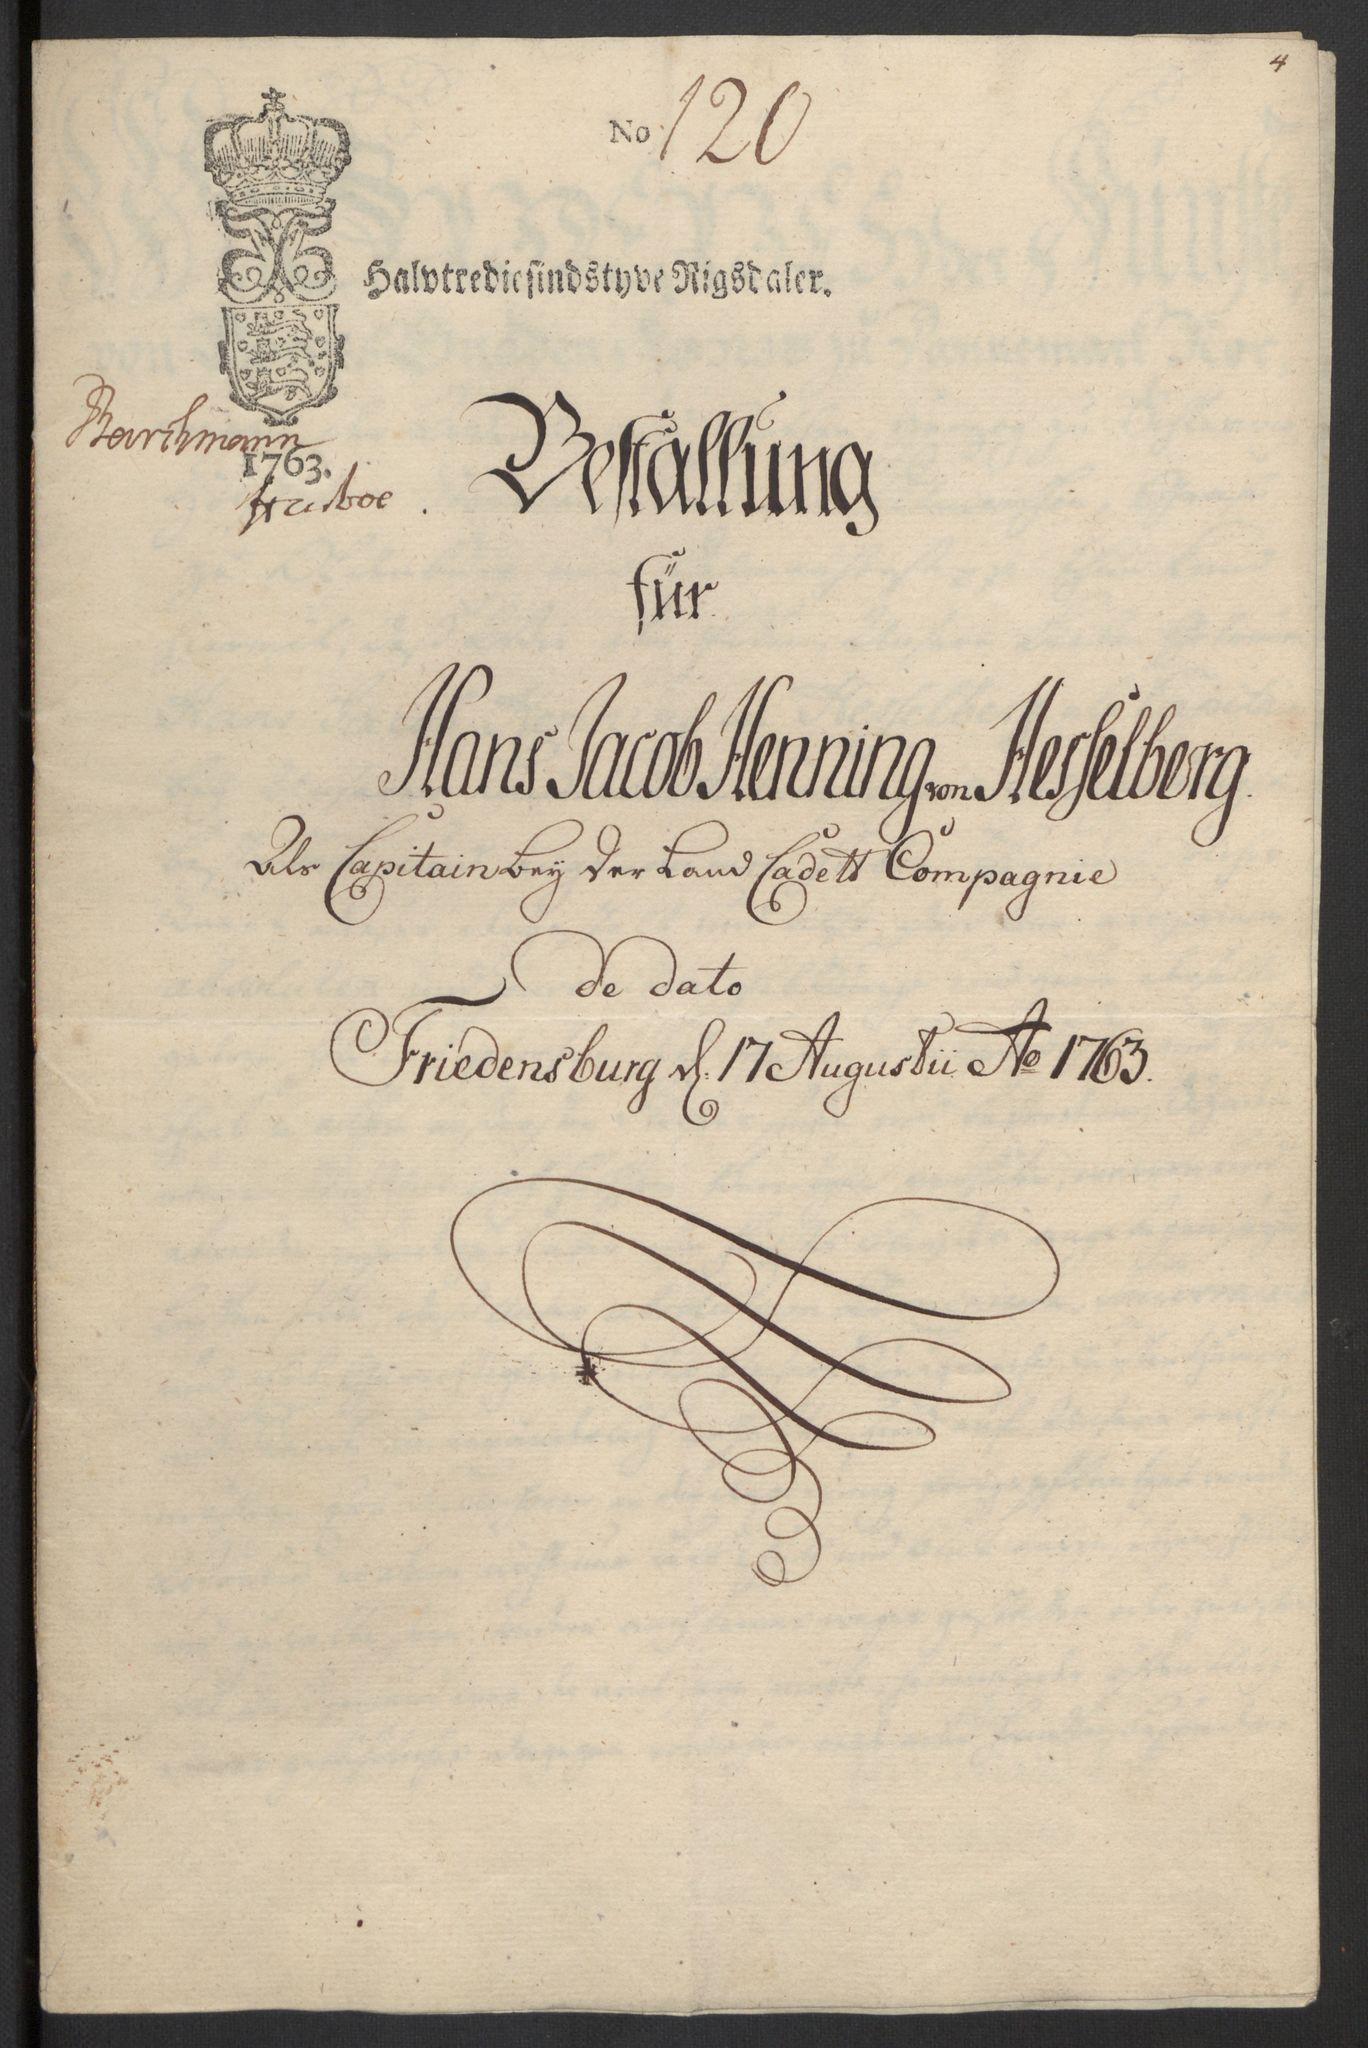 4
No 120
Halvtrediesindstyve Rigsdaler.
Barchmann
1763.
Huiboe.
Bestallung
für
Hans Jacob Henning von Hesselberg.
Als Capitain bey der Land Cadett Compagnie
de dato
Friedensburg d. 17 Augustii Ao 1763.